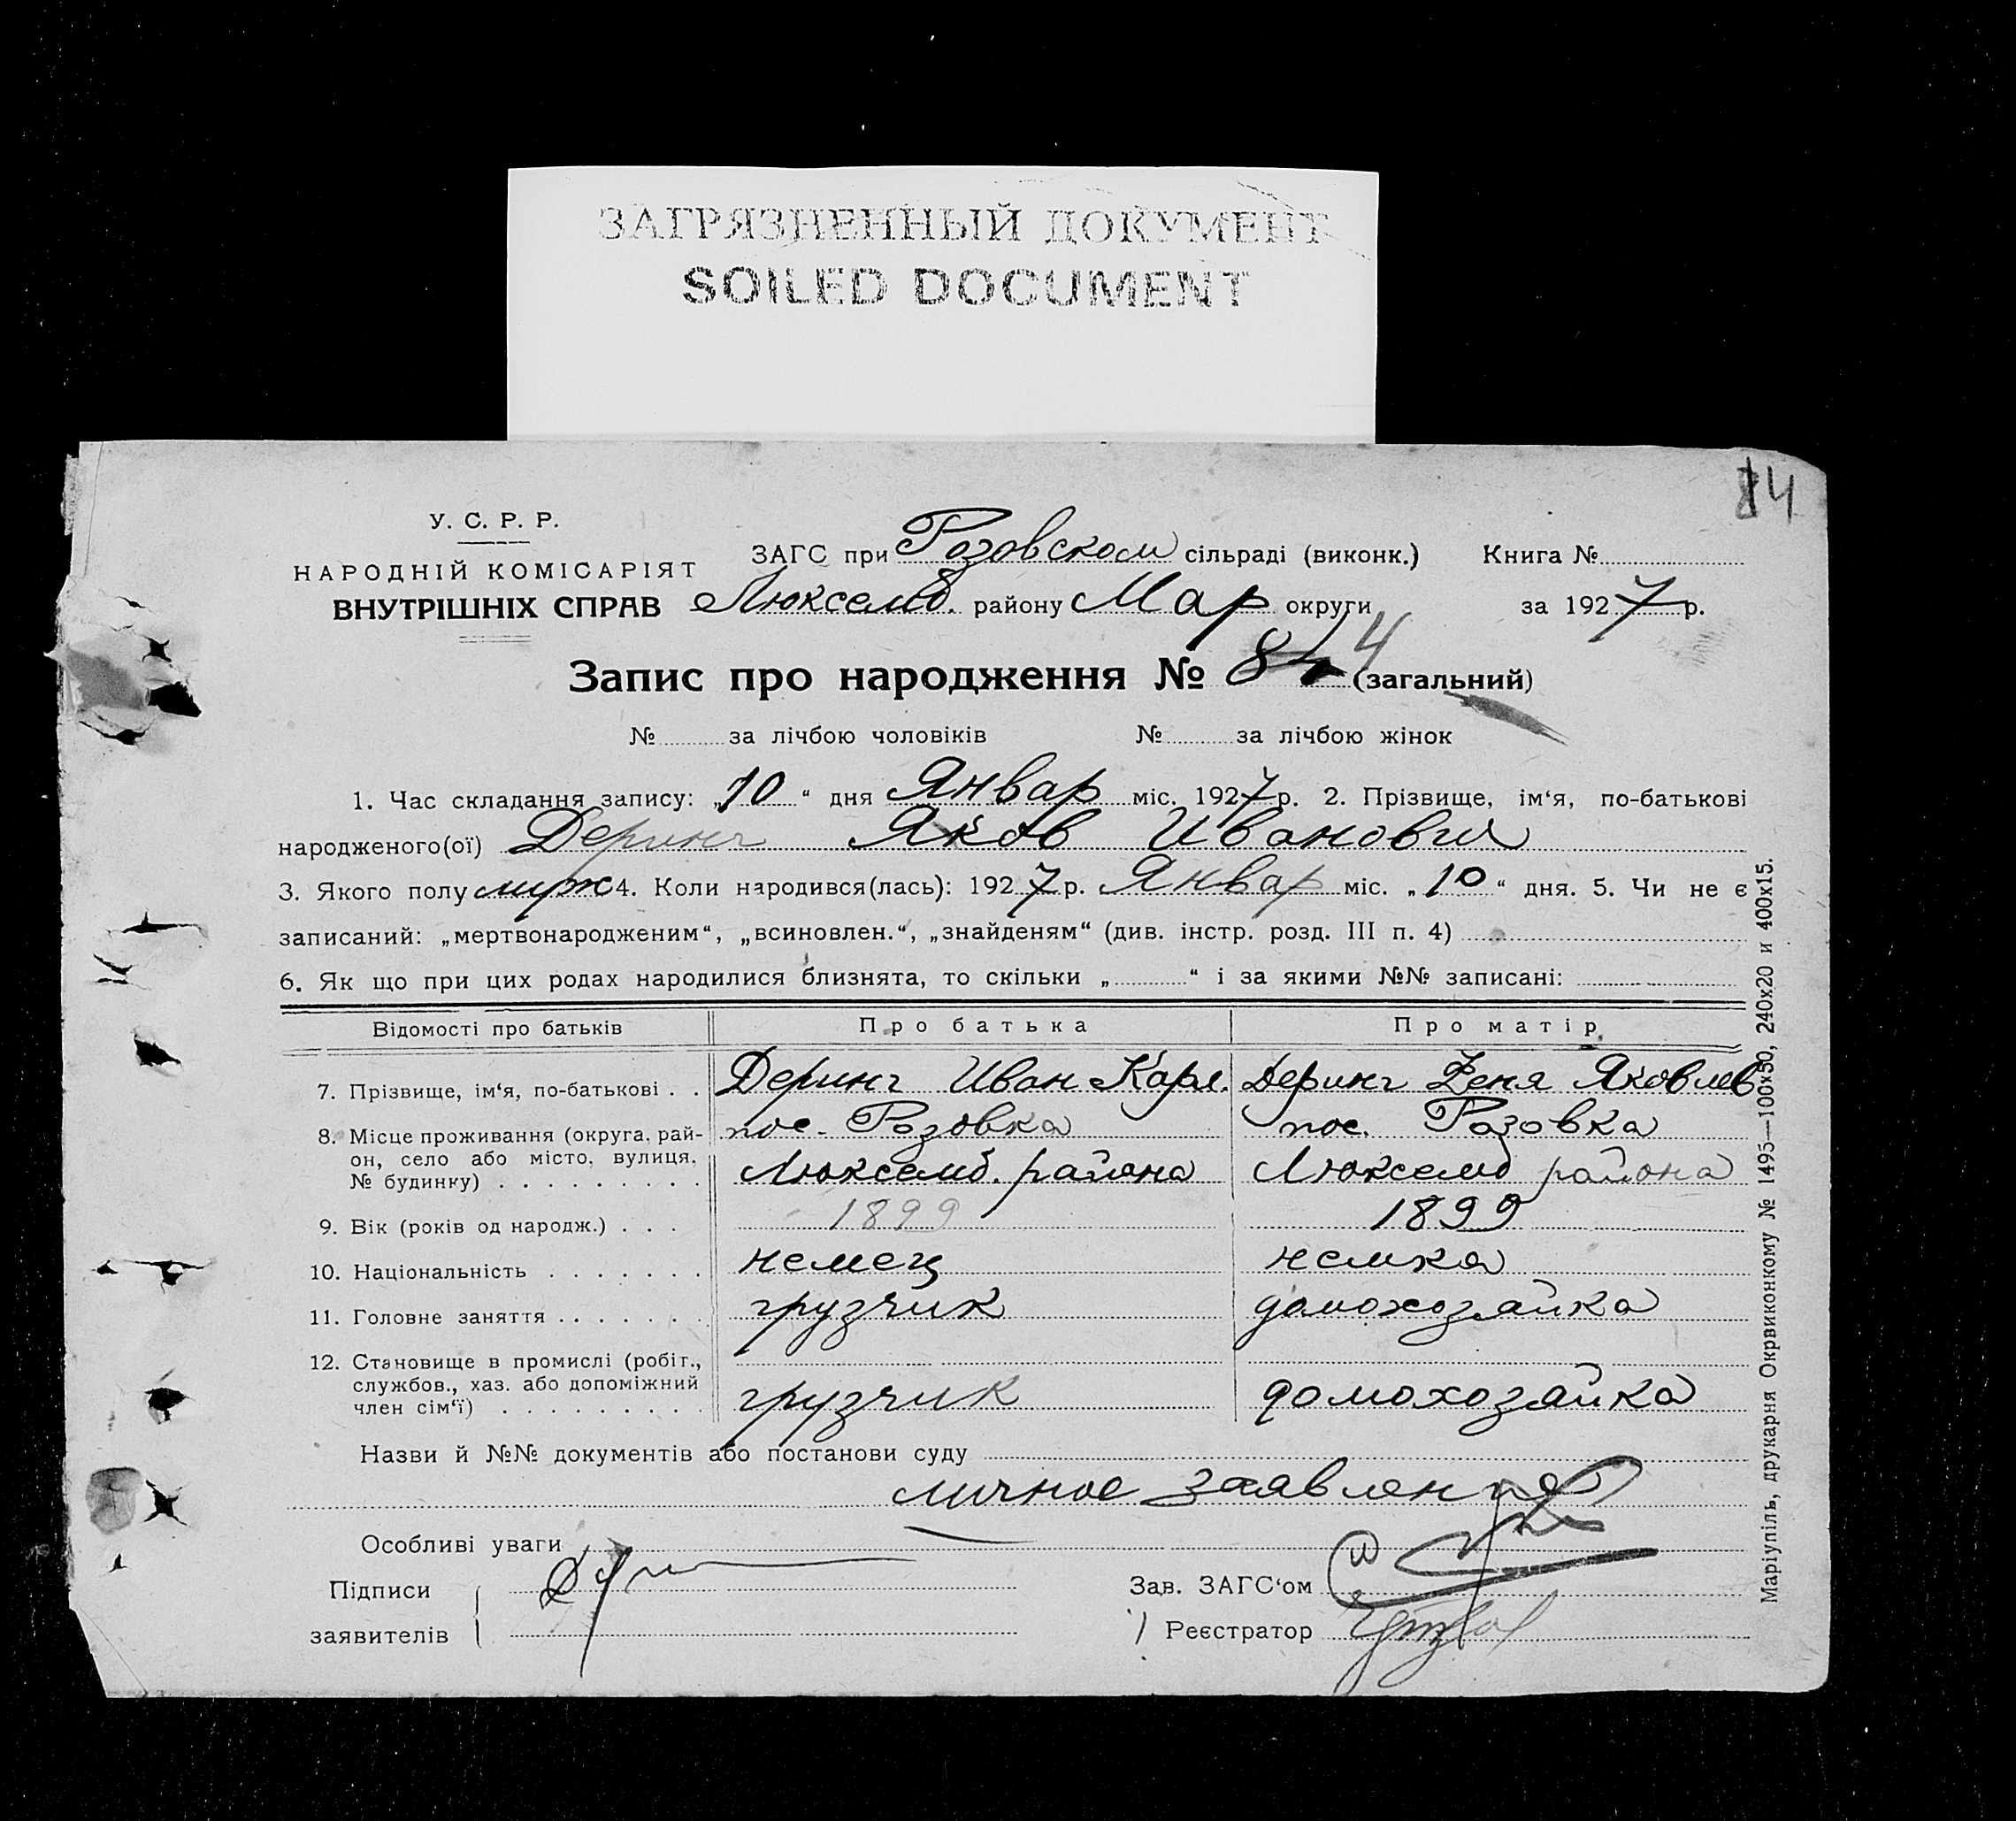 ЗАГРЯЗНЕННЫЙ ДОКУМЕНТ
SOILED DOCUMENT
84
У. С. Р. Р.
НАРОДНІЙ КОМІСАРІЯТ
ВНУТРІШНІХ СПРАВ
ЗАГС при Розовском сільраді (виконк.) Книга №
Люксемб. району Мар округи за 1927 р.
Запис про народження № 84 (загальний)
№ за лічбою чоловіків № за лічбою жінок
1. Час складання запису: „10“ дня Январ міс. 1927 р. 2. Прізвище, ім‘я, по-батькові
народженого(ої) Деринг Яков Иванович
3. Якого полу муж 4. Коли народився(лась): 1927 р. Январ міс. „10“ дня. 5. Чи не є
записаний: „мертвонародженим“, „всиновлен.“, „знайденям“ (див. інстр. розд. III п. 4)
6. Як що при цих родах народилися близнята, то скільки „ “ і за якими №№ записані:
Відомості про батьків Про батька Про матір
7. Прізвище, ім‘я, по-батькові . . Деринг Иван Карл. Деринг Женя Яковлев
8. Місце проживання (округа, рай- пос. Розовка пос. Розовка
он, село або місто, вулиця, Люксемб. района Люксемб района
№ будинку) . . . . . . . . .
9. Вік (років од народж.) . . . 1899 1899
10. Національність . . . . . . . немец немка
11. Головне заняття . . . . . . . грузчик домохозяйка
12. Становище в промислі (робіт.,
службов., хаз. або допоміжний грузчик домохозяйка
член сім‘ї) . . . . . . . . .
Назви й №№ документів або постанови суду
личное заявление
Особливі уваги
Підписи Зав. ЗАГС‘ом
заявителів Реєстратор
Маріупіль, друкарня Окрвиконкому № 1495—100х50, 240х20 и 400х15.